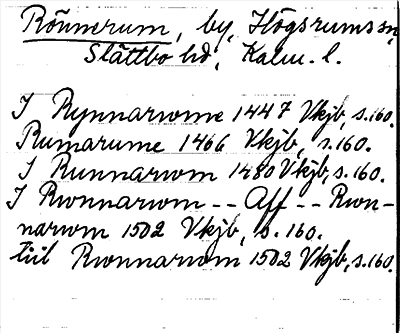 Rönnerum, by, Högsrums sn,
Slättbo hd, Kalm. l.
I Rynnarwme 1447 Vkjb, s. 160.
Rumarume 1466 Vkjb, s. 160.
I Runnarwm 1480 Vkjb, s. 160.
I Rwnnarwm -- Aff -- Rwn-
narwm 1502 Vkjb, s. 160.
tiil Rwnnarwm 1502 Vkjb, s. 160.